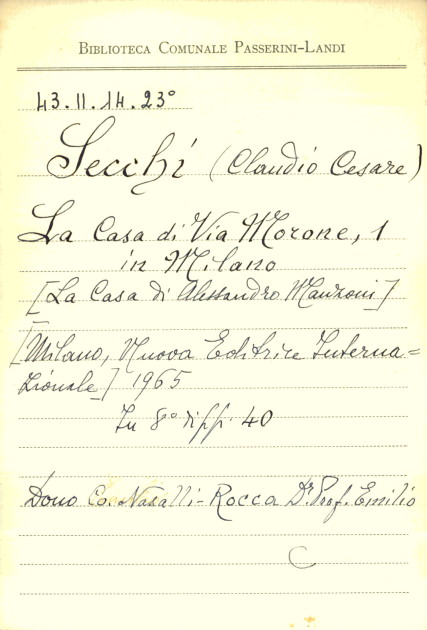 BIBLIOTECA COMUNALE PASSERINI-LANDI
43.II.14.23°
Secchi (Claudio Cesare)
La Casa di Via Morone, 1
in Milano
[La Casa di Alessandro Manzoni]
[Milano, Nuova Editrice Interna=
zionale] 1965
In 8° di pp. 40
Dono Co. Nasalli-Rocca Dr. Prof. Emilio
C